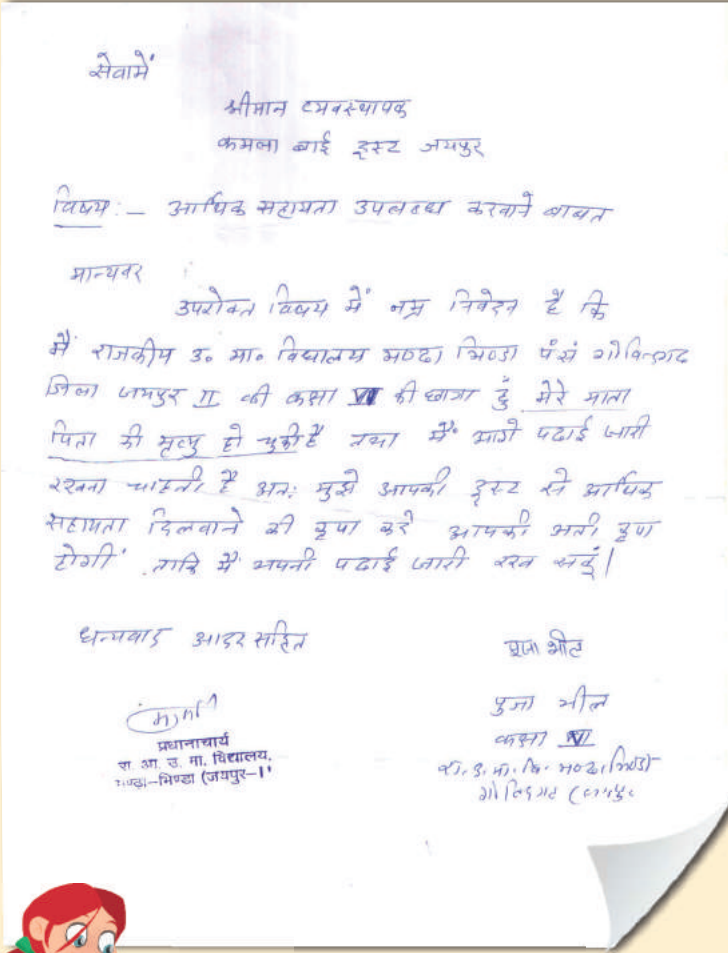 सेवामें
श्रीमान व्यवस्थापक
कमला बाई ट्रस्ट जयपुर
विषय :- आर्थिक सहायता उपलब्ध करवाने बाबत
मान्यवर
उपरोक्त विषय में नम्र निवेदन है कि
मैं राजकीय उ० मा० विद्यालय मण्ढा भिण्डा पं सं गोविन्दगढ
जिला जयपुर II की कक्षा VI की छात्रा हुं मेरे माता
पिता की मृत्यु हो चुकी है तथा मैं आगे पढाई जारी
रखना चाहती है अतः मुझे आपकी ट्रस्ट से आर्थिक
सहायता दिलवाने की कृपा करे आपकी अती कृपा
होगी ताकि मैं अपनी पढाई जारी रख सकुं।
धन्यवाद आदर सहित
पूजा भील
पुजा भील
कक्षा VI
प्रधानाचार्य
रा. आ. उ. मा. विद्यालय,
मण्ढा-भिण्डा (जयपुर-I
रा. उ. मा. वि. मण्ढा भिण्डा
गोविंदगढ (जयपुर